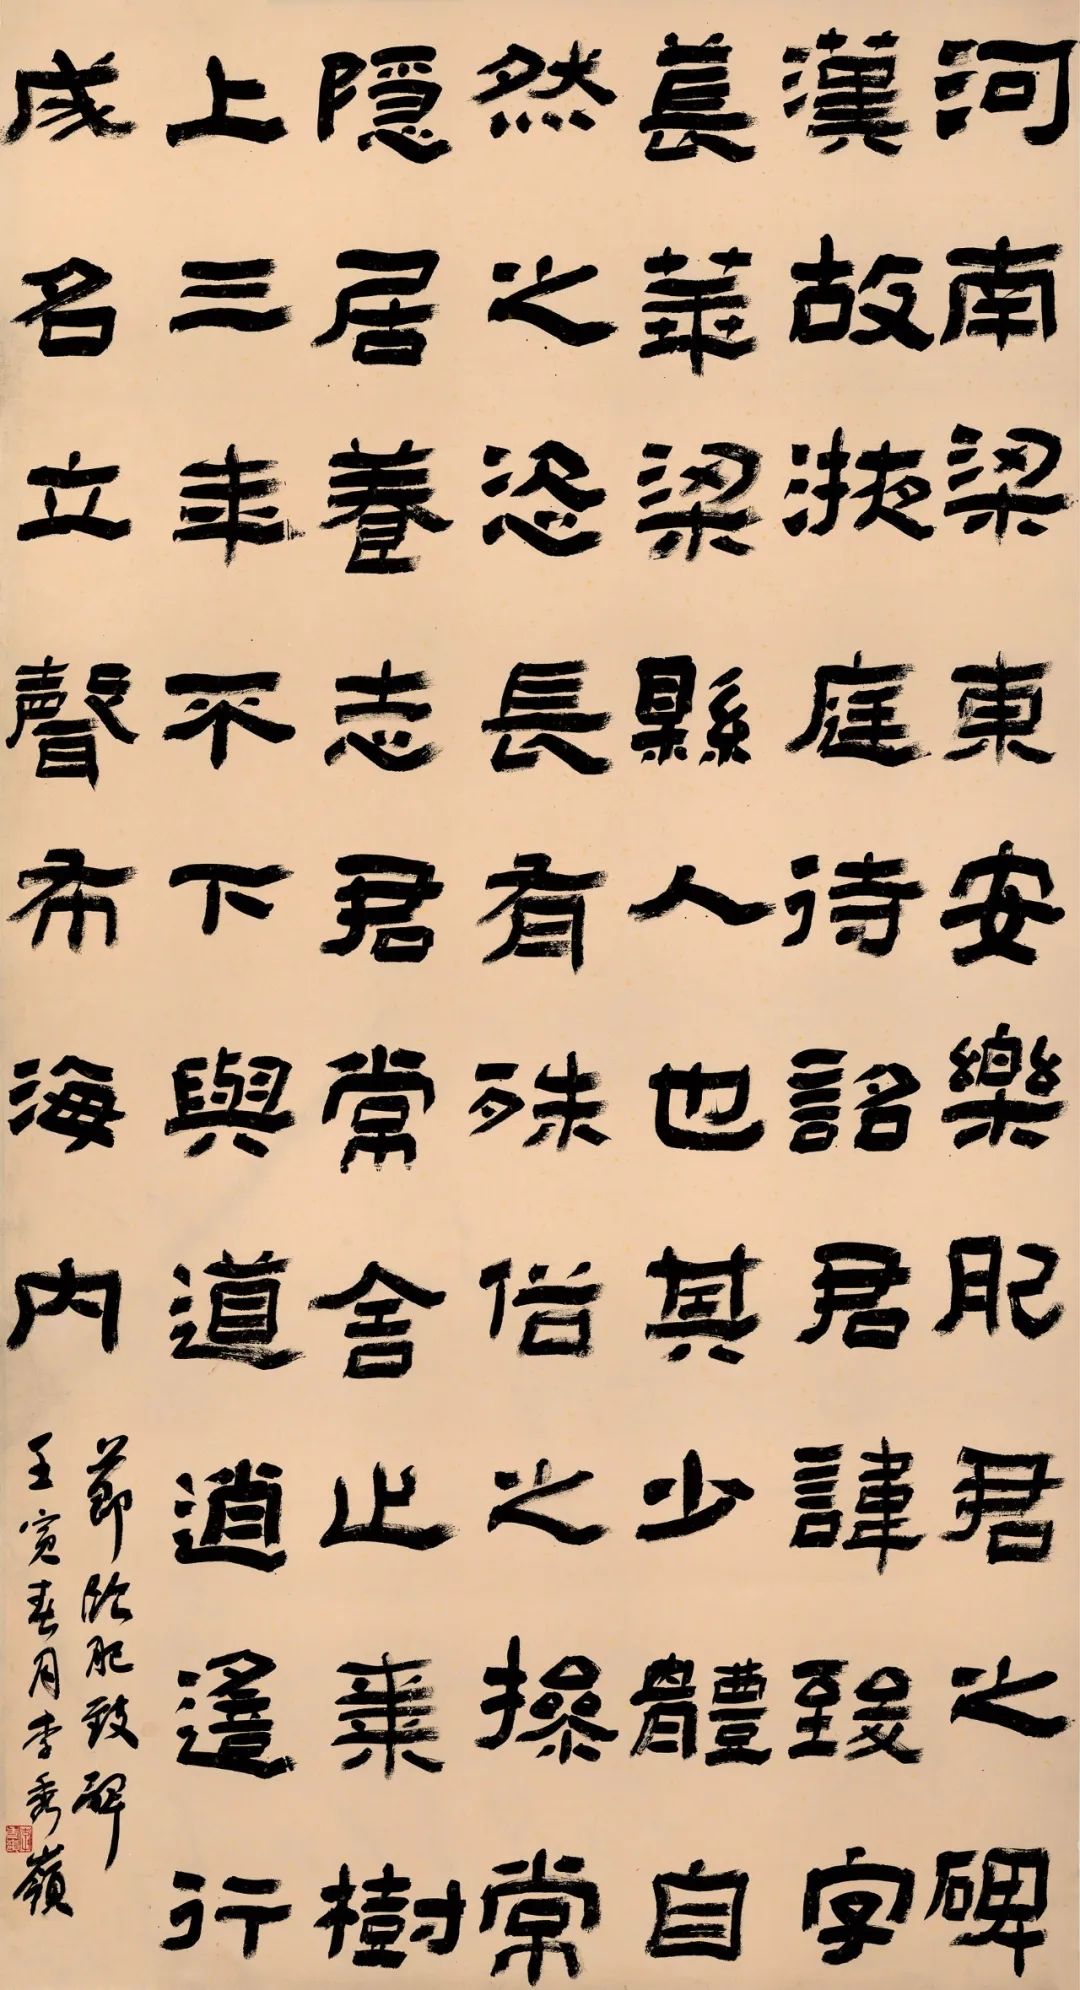 河南梁東安樂肥君之碑
漢故掖庭待詔君諱致字
萇華梁縣人也其少體自
然之恣長有殊俗之操常
隱居養志君常舍止棗樹
上三年不下與道逍遙行
成名立聲布海内
節臨肥致碑
壬寅春月李秀嶺